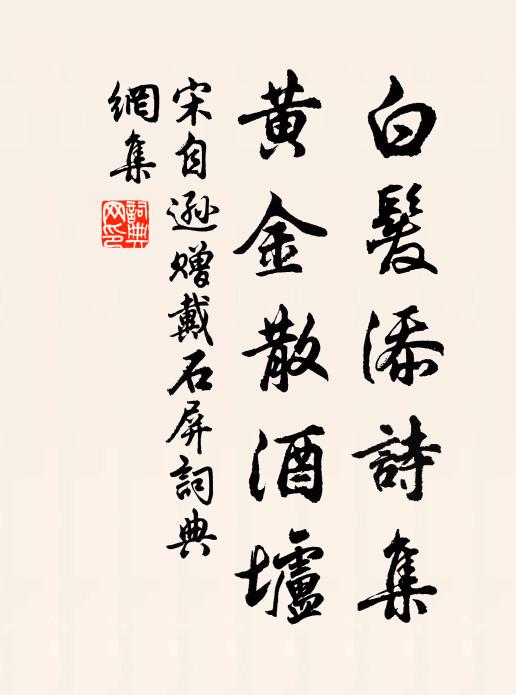 白髮添詩集
黃金散酒壚
宋自遜贈戴石屏詞典
網集
詞典網印